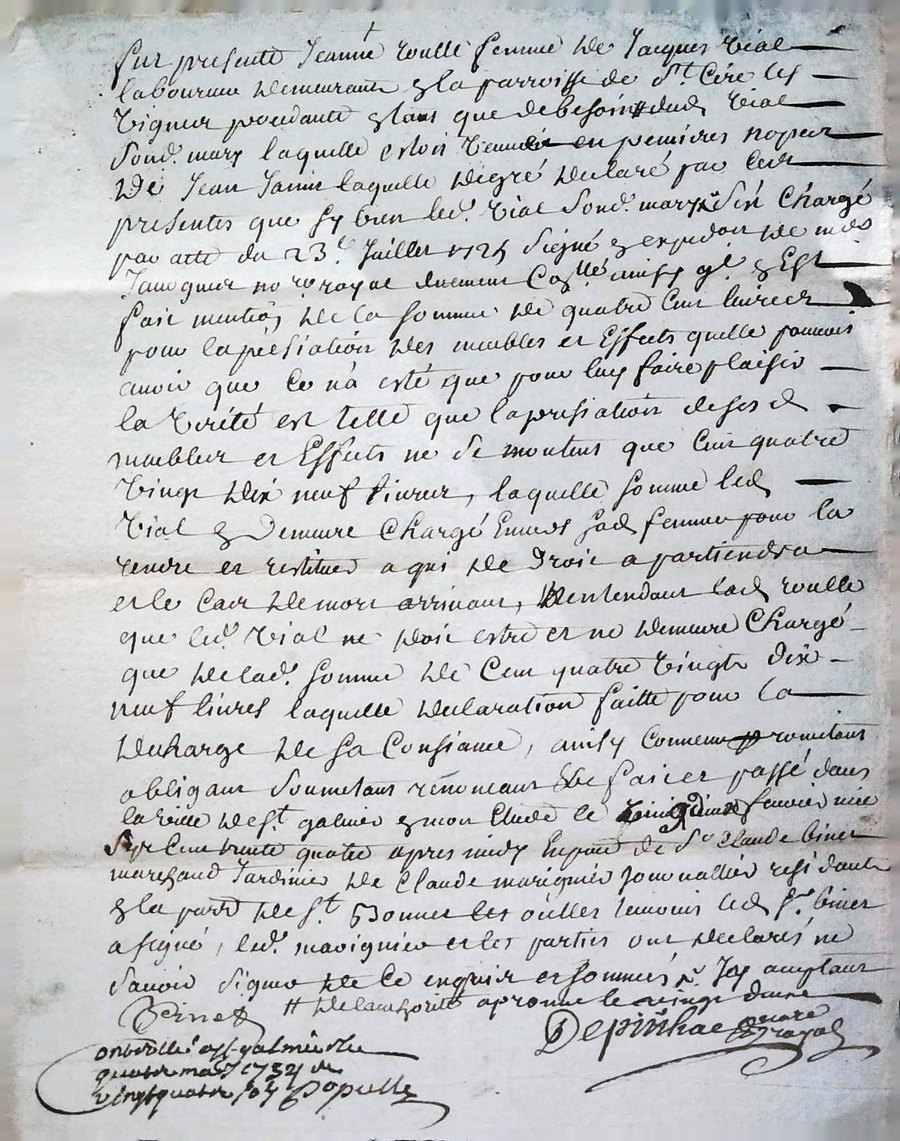 fut presente Jeanne roulle femme de Jacques Vial
laboureur demeurant en la parroisse de St. Cire les
Vignes procedante en tant que de besoin # dud Vial
Sond. mary laquelle estoit en premieres nopces
de Jean Janin laquelle degré declaré par les
presentes que sy bien led. Vial Sond. mary s'est chargé
par acte du 23e Juillet 1725 signé expedon de me
no.re royal duement et Est
fait mention de la somme de quatre cent livres
pour la presiation des meubles et Effects quelle pouvoit
avoir que ce n'a esté que pour luy faire plaisir
la Verité est telle que la presiation desesd
meubles et Effects ne se montent que cent quatre
Vingt dix neuf livres, laquelle somme led
Vial en Demeure Chargé Envers sad femme pour la
rendre et restituer a qui de Droit apartiendra
et le cas de mort arrivant, entendant lad roulle
que led. Vial ne doit estre et ne demeure Chargé
que de lad. somme de Cent quatre Vingt dix
neuf livres laquelle declaration faitte pour la
decharge de sa Consiance, ainsy convenu prometant
obligant Soumetant renonceant &c fait et passé dans
la ville de St. galmier en mon Etude le fevrier mil
Sept Cent trente quatre apres midy En pnce de Sr. Claude binet
marchand Jardinier de Claude marignier Journallier residants
en la parr de St. Bonnet les oulles temoins led Sr. binet
a signé, led. marignier et les parties ont declarés ne
Savoir Signer de ce enquis et sommés
Bernet # de lauthorité
Depinhac no.re royal
a St. galmier le
quatre mars 1734 Rx
vingt quatre sols Populle